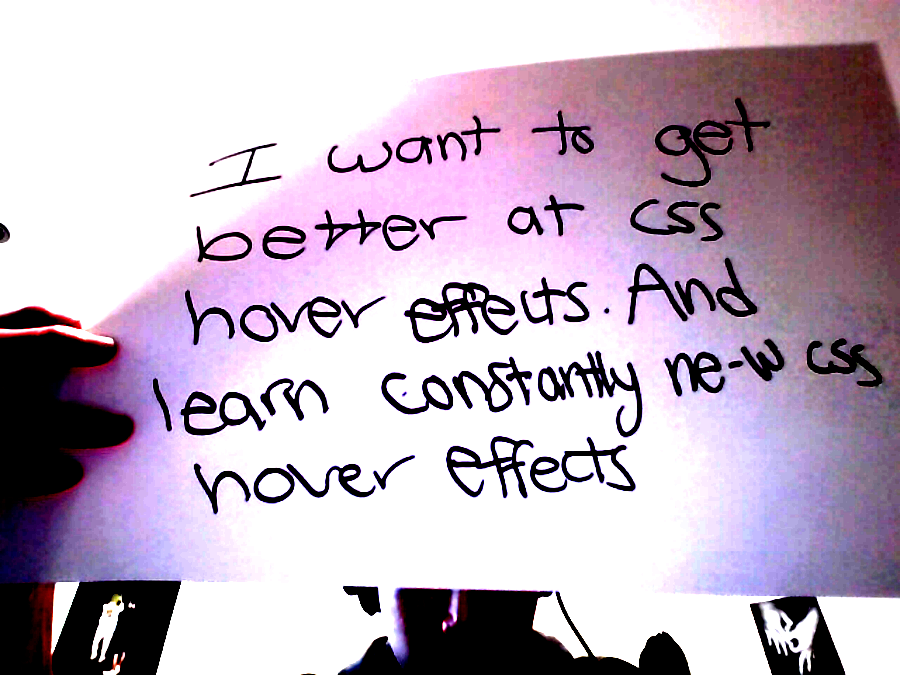 I want to get
better at css
hover effects. And
learn constantly ne-w css
hover effects